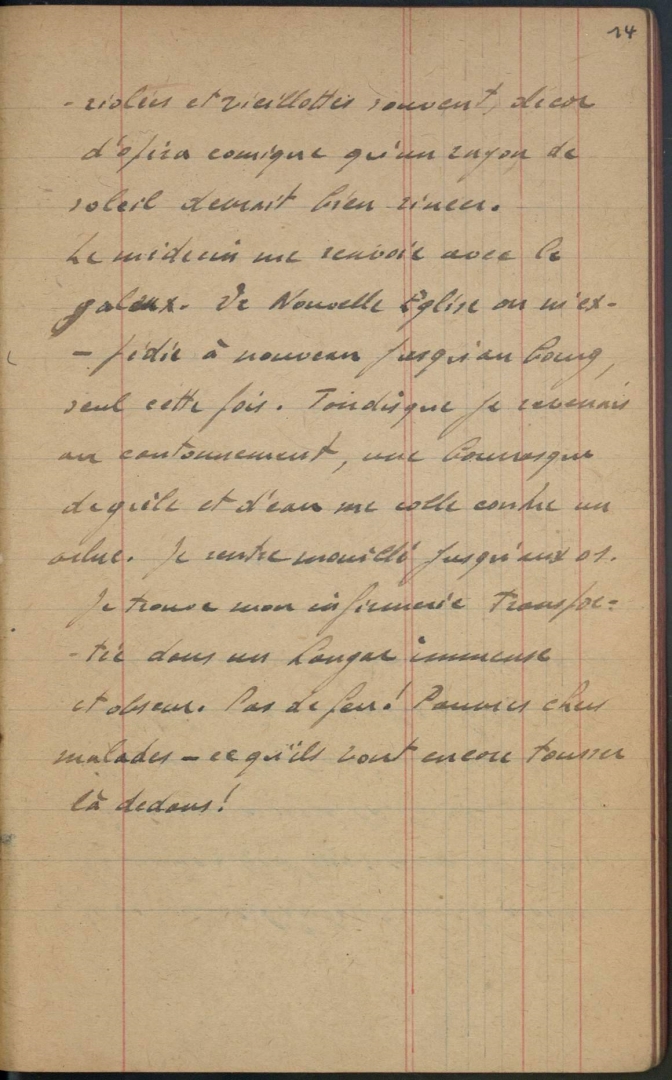 14
-violées et vieillottes souvent, décor
d'opéra comique qu'un rayon de
soleil devrait bien rincer.
Le médecin me renvoie avec le
galeux. De Nouvelle Eglise on m'ex-
-pédie à nouveau jusqu'au bourg,
seul cette fois. Tandis que je revenais
au cantonnement, une bourrasque
de grêle et d'eau me colle contre un
arbre. Je rentre mouillé jusqu'aux os.
Je trouve mon infirmerie transpor=
-tée dans un hangar immense
et obscur. Pas de feu! Pauvres chers
malades - ce qu'ils vont encore tousser
là dedans!